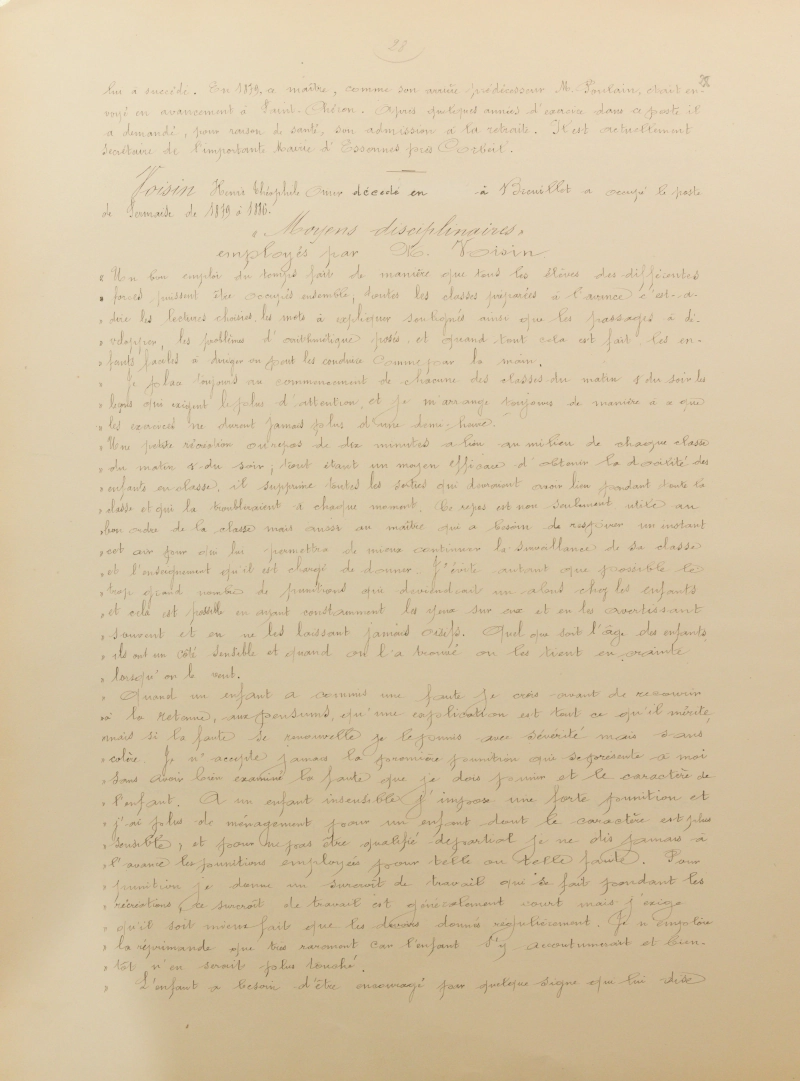 28
28.
lui a succédé. En 1879. ce maître, comme son arrière prédécesseur M. Poulain, était en-
voyé en avancement à Saint-Chéron. Après quelques années d'exercice dans ce poste il
a demandé, pour raison de santé, son admission à la retraite. Il est actuellement
secrétaire de l'importante Mairie d'Essonnes près Corbeil.
Voisin Henri Théophile Omer décédé en à Breuillet a occupé le poste
de Sermaise de 1879 à 1886.
« Moyens disciplinaires »
employés par M. Voisin
« Un bon emploi du temps fait de manière que tous les élèves des différentes
» forces puissent être occupés ensemble, toutes les classes préparées à l'avance c'est-à-
» dire les lectures choisies, les mots à expliquer soulignés ainsi que les passages à dé-
» velopper, les problèmes d'arithmétique posés, et quand tout cela est fait, les en-
» fants faciles à diriger on peut les conduire comme par la main.
» Je place toujours au commencement de chacune des classes du matin & du soir les
» leçons qui exigent le plus d'attention, et je m'arrange toujours de manière à ce que
» les exercices ne durent jamais plus d'une demi-heure.
» Une petite récréation ou repos de dix minutes a lieu au milieu de chaque classe
» du matin & du soir, tout étant un moyen efficace d'obtenir la docilité des
» enfants en classe, il supprime toutes les sorties qui devraient avoir lieu pendant toute la
» classe et qui la troubleraient à chaque moment. Ce repos est non seulement utile au
» bon ordre de la classe mais aussi au maître qui a besoin de respirer un instant
» cet air pur qui lui permettra de mieux continuer la surveillance de sa classe
» et l'enseignement qu'il est chargé de donner. J'évite autant que possible le
» trop grand nombre de punitions qui deviendrait un abus chez les enfants
» et cela est possible en ayant constamment les yeux sur eux et en les avertissant
» souvent et en ne les laissant jamais oisifs. Quel que soit l'âge des enfants
» ils ont un côté sensible et quand on l'a trouvé on les tient en crainte
» lorsqu'on le veut.
» Quand un enfant a commis une faute je crois avant de recourir
» à la retenue, aux pensums, qu'une explication est tout ce qu'il mérite,
» mais si la faute se renouvelle je le punis avec sévérité mais sans
» colère. Je n'accepte jamais la première punition qui se présente à moi
» sans avoir bien examiné la faute que je dois punir et le caractère de
» l'enfant. A un enfant insensible j'impose une forte punition et
» j'ai plus de ménagement pour un enfant dont le caractère est plus
» sensible, et pour ne pas être qualifié de partial je ne dis jamais à
» l'avance les punitions employées pour telle ou telle faute. Pour
» punition je donne un surcroît de travail qui se fait pendant les
» récréations, ce surcroît de travail est généralement court mais j'exige
» qu'il soit mieux fait que les devoirs donnés régulièrement. Je n'emploie
» la réprimande que très rarement car l'enfant s'y accoutumerait et bien-
» tôt n'en serait plus touché.
» L'enfant a besoin d'être encouragé par quelque signe qui lui dise